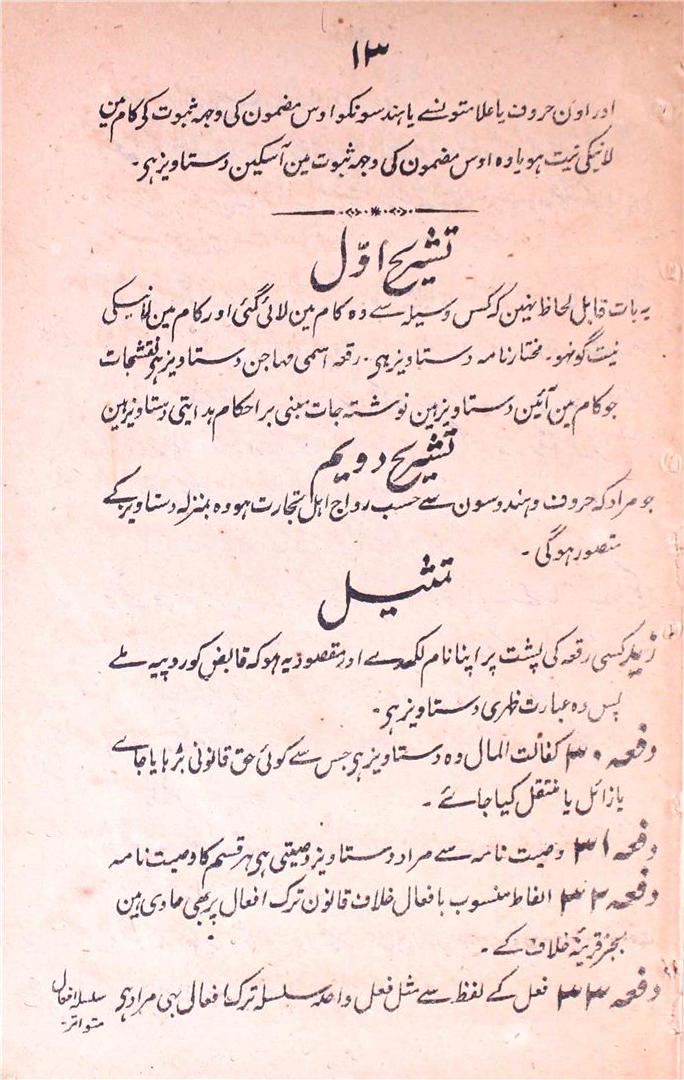 ۱۳
اور اون حروف یا علامتونسے یا ہندسونکو اوس مضمون کی وجہ ثبوت کو کام مین
لانیکی نیت ہو یا وہ اوس مضمون کی وجہ ثبوت مین آسکین دستاویز ہی۔
تشریح اوّل
یہ بات قابل لحاظ نہین کہ کس وسیلہ سے وہ کام مین لائی گئی اور کام مین لانیکی
نیت گو نہو۔ مختارنامہ دستاویز ہی۔ رقعہ اسمی مہاجن دستاویز ہی نقشجات
جو کام مین آئین دستاویز ہین نوشتہ جات مبنی بر احکام ہدایتی دستاویز ہین
تشریح دویم
جو مراد کہ حروف و ہندوسون سے حسب رواج اہل تجارت ہو وہ بمنزلہ دستاویز کے
متصور ہوگی۔
تمثیل
زید کسی رقعہ کی پشت پر اپنا نام لکھدے اور مقصود یہ ہو کہ قابض کو روپیہ ملے
پس وہ عبارت ظہری دستاویز ہی۔
دفعہ ۳۰ کفالت المال وہ دستاویز ہی جس سے کوئی حق قانونی بڑہایا جاے
یا زائل یا منتقل کیا جائے۔
دفعہ ۳۱ وصیت نامہ سے مراد دستاویز وصیتی ہی ہر قسم کا وصیت نامہ
دفعہ ۳۲ الفاظ منسوب بافعال خلاف قانون ترک افعال پر بھی حاوی ہین
بجز قرینۂ خلاف کے۔
دفعہ ۳۳ فعل کے لفظ سے مثل فعل واحد سلسلہ ترک افعال بہی مراد ہی
سلسلہ افعال
متواتر